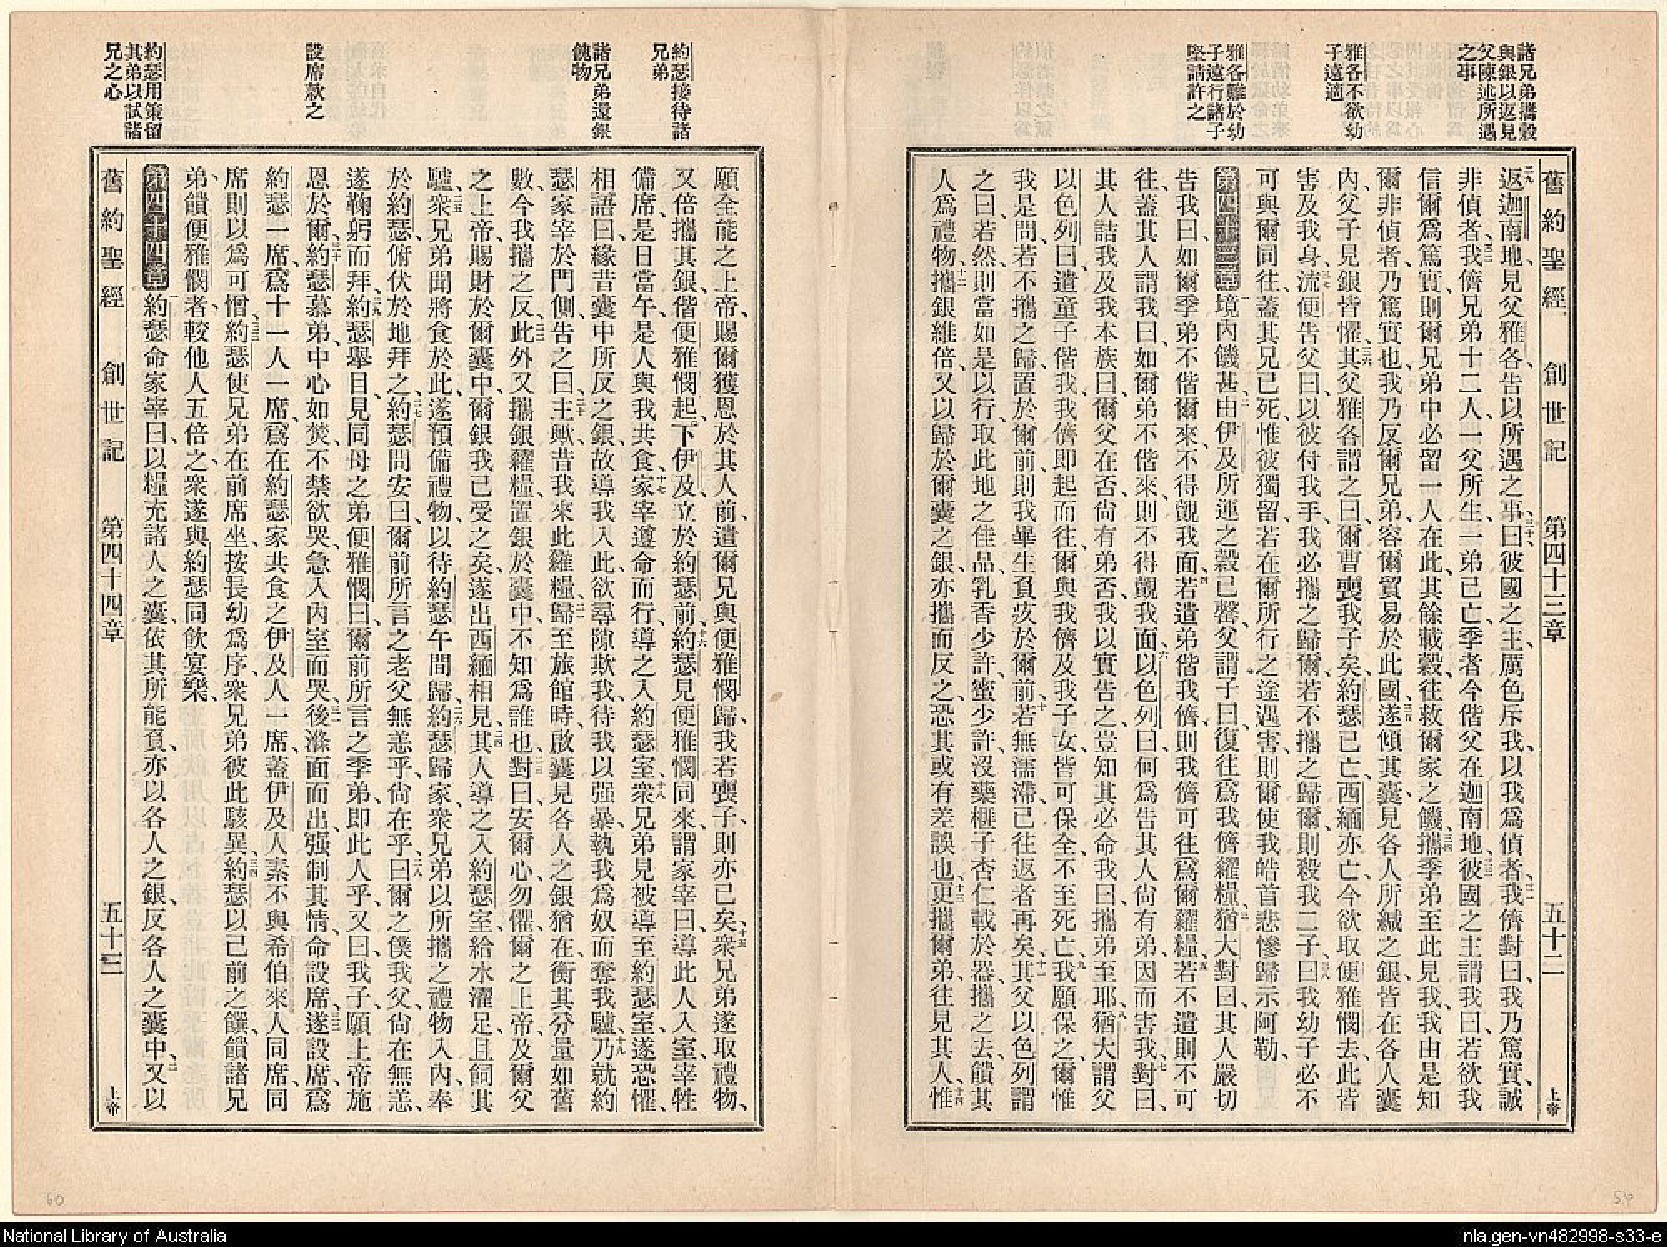 諸兄弟攜穀
與銀以返見
父陳述所遇
之事
雅各不欲幼
子遠適
雅各難於幼
子遠行諸子
堅請許之
舊約聖經 創世記 第四十三章 五十二 上帝
返迦南地見父雅各告以所遇之事、曰彼國之主、厲色斥我、以我爲偵者、我儕對曰、我乃篤實、誠
非偵者、我儕兄弟十二人、一父所生、一弟已亡、季者今偕父在迦南地、彼國之主謂我曰、若欲我
信爾爲篤實、則爾兄弟中必留一人在此、其餘載穀、往救爾家之饑、攜季弟至此見我、我由是知
爾非偵者、乃篤實也、我乃反爾兄弟、容爾貿易於此國、遂傾其囊、見各人所緘之銀、皆在各人囊
內、父子見銀皆懼、其父雅各謂之曰、爾曹喪我子矣、約瑟已亡、西緬亦亡、今欲取便雅憫去、此皆
害及我身、流便告父曰、以彼付我手、我必攜之歸爾、若不攜之歸爾、則殺我二子、曰、我幼子必不
可與爾同往、蓋其兄已死、惟彼獨留、若在爾所行之途遇害、則爾使我皓首悲慘歸示阿勒、
第四十三章 境內饑甚、由伊及所運之穀已罄、父謂子曰、復往爲我儕糴糧、猶大對曰、其人嚴切
告我曰、如爾季弟不偕爾來、不得覿我面、若遣弟偕我儕、則我儕可往爲爾糴糧、若不遣、則不可
往、蓋其人謂我曰、如爾弟不偕來、則不得覿我面、以色列曰、何爲告其人尙有弟、因而害我、對曰、
其人詰我及我本族曰、爾父在否、尙有弟否、我以實告之、豈知其必命我曰、攜弟至耶、猶大謂父
以色列曰、遣童子偕我、我儕即起而往、爾與我儕及我子女、皆可保全、不至死亡、我願保之、爾惟
我是問、若不攜之歸、置於爾前、則我畢生負疚於爾前、若無濡滯、已往返者再矣、其父以色列謂
之曰、若然、則當如是以行、取此地之佳品、乳香少許、蜜少許、沒藥、榧子、杏仁、載於器、攜之去、饋其
人爲禮物、攜銀維倍、又以歸於爾囊之銀、亦攜而反之、恐其或有差誤也、更攜爾弟、往見其人、惟
約瑟接待諸
兄弟
諸兄弟還銀
餽物
設席款之
約瑟用策留
其弟以試諸
兄之心
願全能之上帝、賜爾獲恩於其人前、遣爾兄與便雅憫歸、我若喪子、則亦已矣、衆兄弟遂取禮物、
又倍攜其銀、偕便雅憫起、下伊及、立於約瑟前、約瑟見便雅憫同來、謂家宰曰、導此人入室、宰牲
備席、是日當午、是人與我共食、家宰遵命而行、導之入約瑟室、衆兄弟見被導至約瑟室、遂恐懼、
相語曰、緣昔囊中所反之銀、故導我入此、欲尋隙欺我、待我以强暴、執我爲奴、而奪我驢、乃就約
瑟家宰、於門側告之曰、主歟、昔我來此糴糧、歸至旅館時、啟囊、見各人之銀、猶在衡其分量如舊
數、今我攜之反、此外又攜銀糴糧、置銀於囊中、不知爲誰也、對曰、安爾心、勿懼、爾之上帝、及爾父
之上帝、賜財於爾囊中、爾銀我已受之矣、遂出西緬相見、其人導之入約瑟室、給水濯足、且飼其
驢、衆兄弟聞將食於此、遂預備禮物、以待約瑟午間歸、約瑟歸家、衆兄弟以所攜之禮物入內、奉
於約瑟、俯伏於地拜之、約瑟問安曰、爾前所言之老父無恙乎、尙在乎、曰、爾之僕我父尙在無恙、
遂鞠躬而拜、約瑟舉目、見同母之弟便雅憫曰、爾前所言之季弟、即此人乎、又曰、我子、願上帝施
恩於爾、約瑟慕弟、中心如焚、不禁欲哭、急入內室而哭、後滌面而出、强制其情、命設席、遂設席、爲
約瑟一席、爲十一人一席、爲在約瑟家共食之伊及人一席、蓋伊及人素不與希伯來人同席、同
席則以爲可憎、約瑟使兄弟在前席坐、按長幼爲序、衆兄弟彼此駭異、約瑟以己前之饌、饋諸兄
弟、饋便雅憫者、較他人五倍之、衆遂與約瑟同飲宴樂、
第四十四章 約瑟命家宰曰、以糧充諸人之囊、依其所能負、亦以各人之銀、反各人之囊中、又以
舊約聖經 創世記 第四十四章 五十三 上帝
60
National Library of Australia
nla.gen-vn482998-s33-e